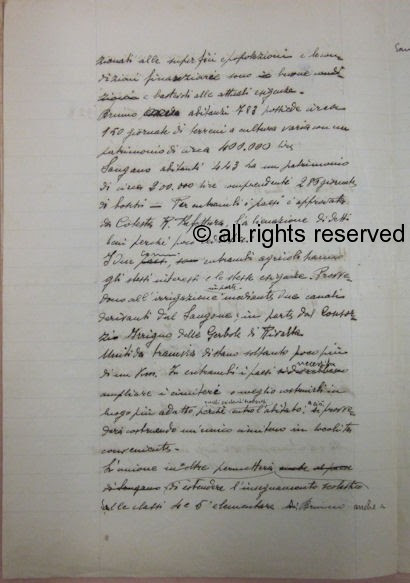 zionati alle superfici e popolazioni e le con-
dizioni finanziarie sono in buone condi
zioni e bastevoli alle attuali esigenze.
Bruino abitanti 783 possiede circa
150 giornate di terreni a cultura varia con un
patrimonio di circa 400.000 lire
Sangano abitanti 443 ha un patrimonio
di circa 200.000 lire comprendenti 285 giornate
di boschi — Per entrambi i paesi è approvata
da Codesta R. Prefettura l'alienazione di detti
beni perché poco
© all rights reserved
I due comuni entrambi agricoli hanno
gli stessi interessi e le stesse esigenze. Provve
dono all'irrigazione mediante due canali
in parte
derivanti dal Sangone, in parte dal Consor-
zio Irriguo delle Gerbole di Rivalta
Uniti da tranvia distano soltanto poco più
di un Km. In entrambi i paesi necessita
ampliare i cimiteri o meglio costruirli in
luogo più adatto, perché entro l'abitato, si provve
derà costruendo un unico cimitero in località
conveniente.
L'unione inoltre permetterà anche al paese
di Sangano di estendere l'insegnamento scolastico
alle classi 4e 5e elementare di Bruino anche a